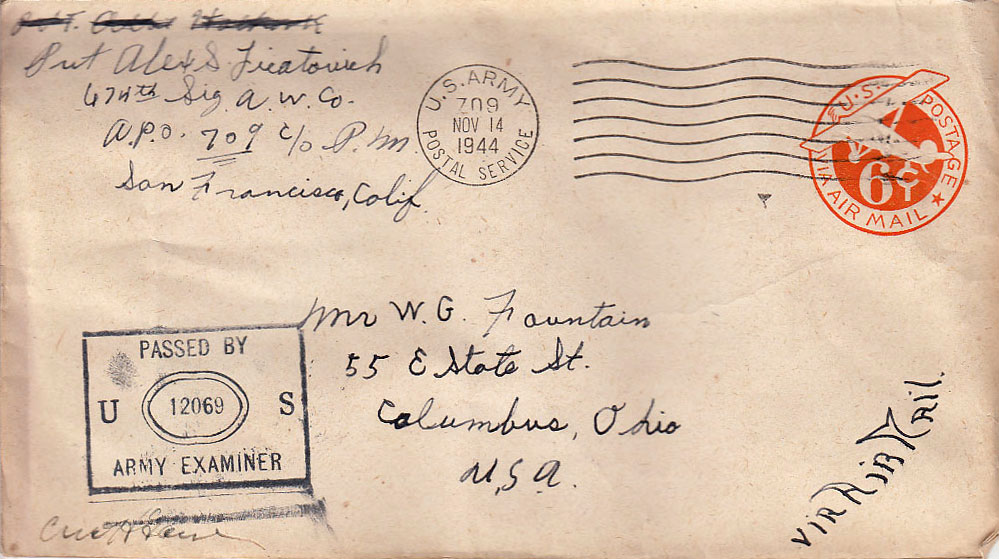 Pvt Alex S. Ficatovich
674th Sig A.W. Co.
A.P.O. 709 c/o P.M.
San Francisco, Calif.
U.S. ARMY
709
NOV 14
1944
POSTAL SERVICE
U.S. POSTAGE
6¢
VIA AIR MAIL
Mr W. G. Fountain
55 E State St.
Columbus, Ohio
U.S.A.
PASSED BY
U 12069 S
ARMY EXAMINER
VIA AIR MAIL.